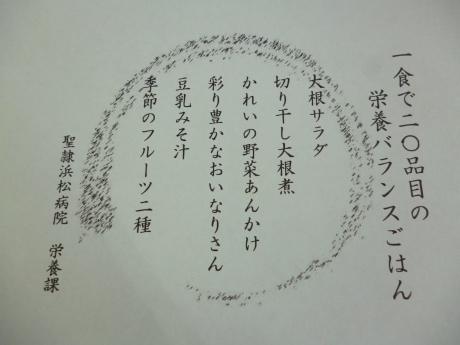 一食で二〇品目の
栄養バランスごはん
大根サラダ
切り干し大根煮
かれいの野菜あんかけ
彩り豊かなおいなりさん
豆乳みそ汁
季節のフルーツ二種
聖隷浜松病院 栄養課